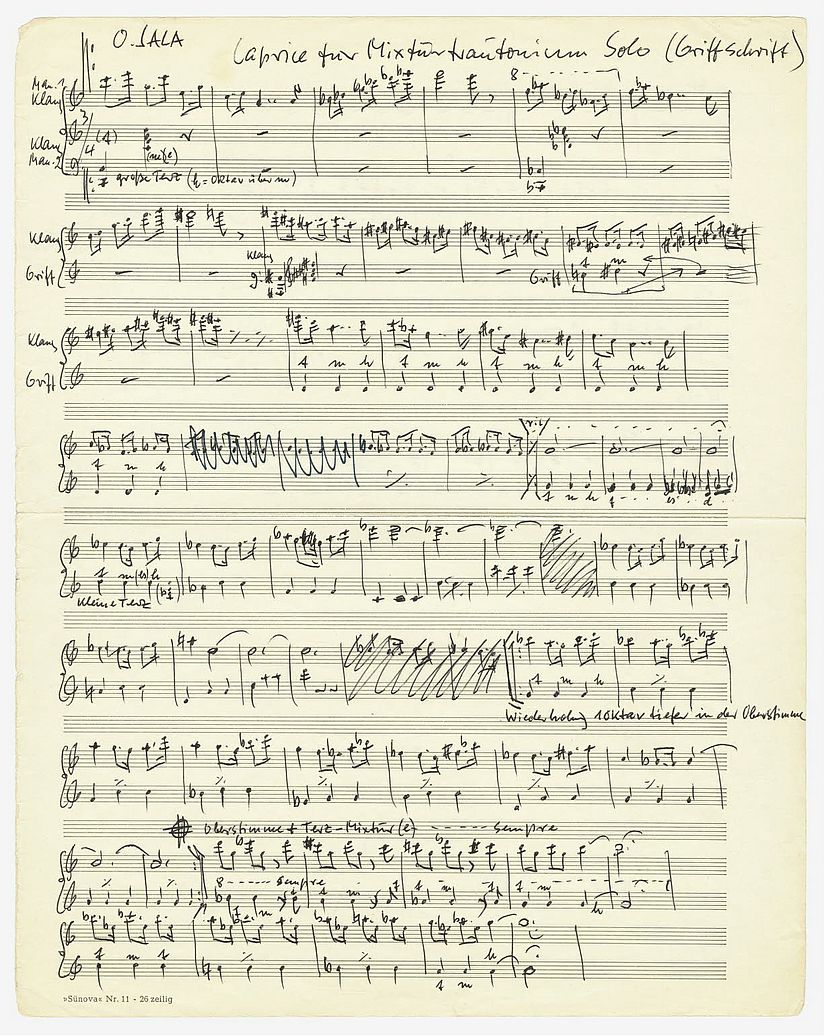 O. SALA
Caprice für Mixturtrautonium Solo (Griffschrift)
Man. 1
Klang
8
3/4
(4)
Klang
Man. 2
große Terz
Klang
Klang
Griff
Griff
t m
Klang
t m h t m h t m h t m h
Griff
rit
t m h
t m h t
t m h
kleine Terz
t m h
Wiederholung 1 Oktav tiefer in der Oberstimme
Oberstimme + Terz-Mixtur (e) sempre
8 sempre
t m
h
t m
h
t m
»Sünova« Nr. 11 - 26 zeilig